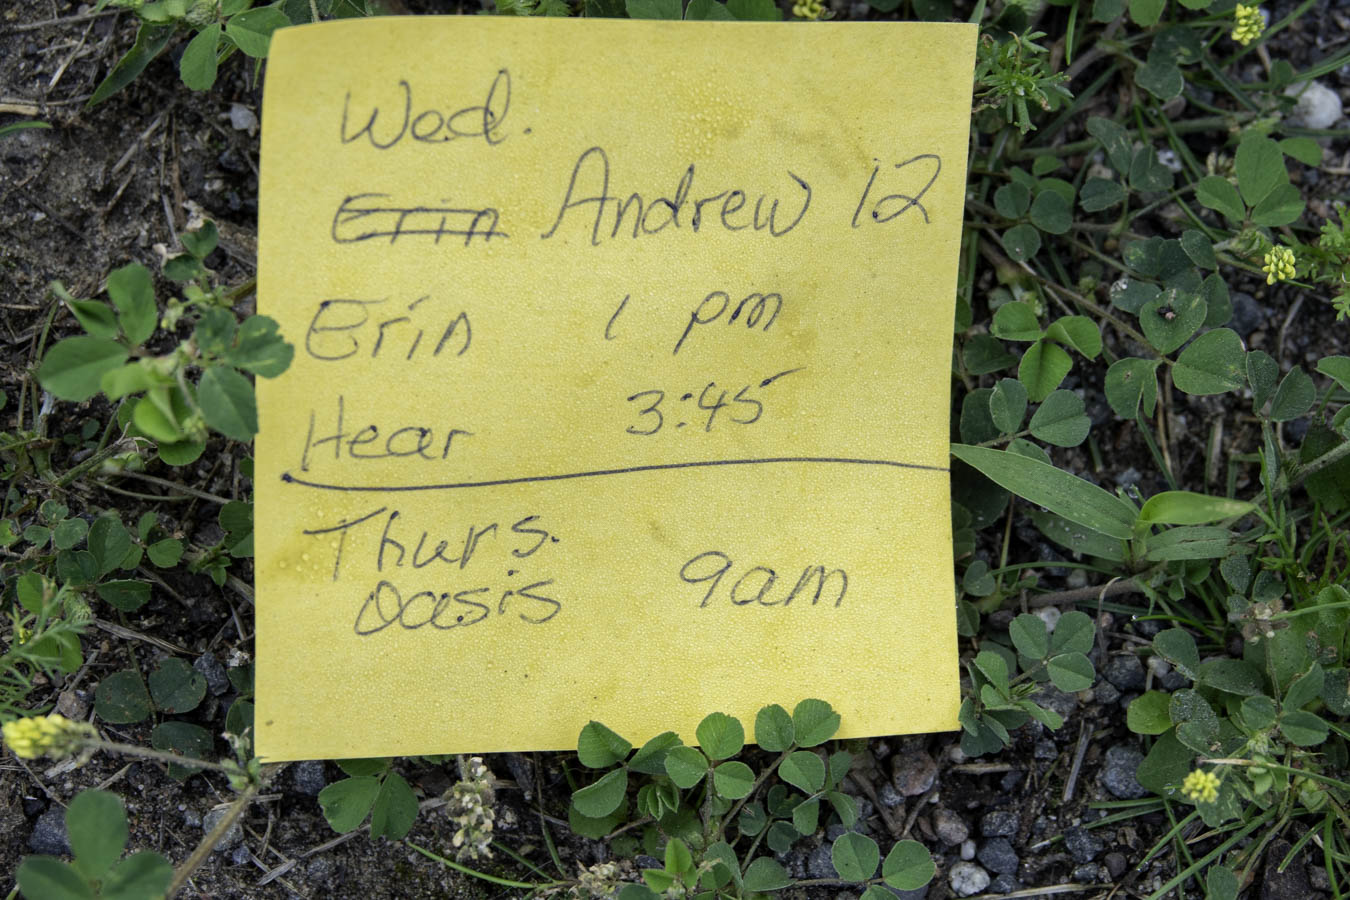 Wed.
Erin Andrew 12
Erin 1 pm
Hear 3:45
Thurs.
Oasis 9am